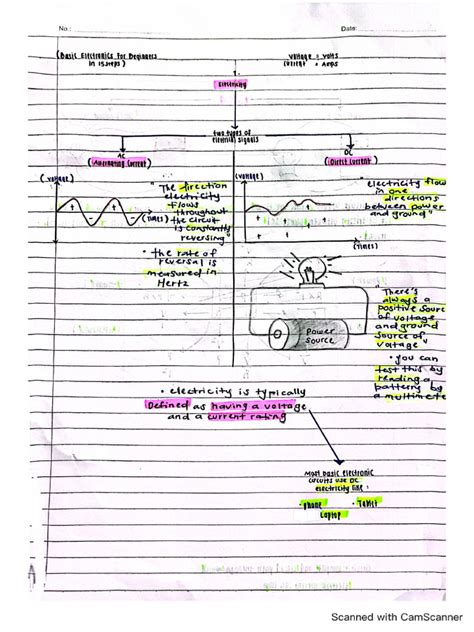 No.: Date:
(Basic Electronics for Beginners
in 15 steps)
voltage = volts
current = Amps
Electricity
two types of
electrical signals
AC
(Alternating current)
DC
(Direct current)
(voltage)
+ +
- -
(TIMES)
" The direction
electricity
flows
throughout
the circuit
is constantly
reversing"
• the rate of
reversal is
measured in
Hertz
(voltage)
+
+ + +
(TIMES)
"electricity flow
in one
directions
between power
and ground"
Power
source
"There's
always a
positive source
of voltage
and ground
source of
voltage"
• you can
test this by
reading a
battery by
a multimete
• electricity is typically
Defined as having a voltage
and a current rating
Most basic electronic
circuits use DC
electricity like:
• phone • Tablet
Laptop
A
Scanned with CamScanner